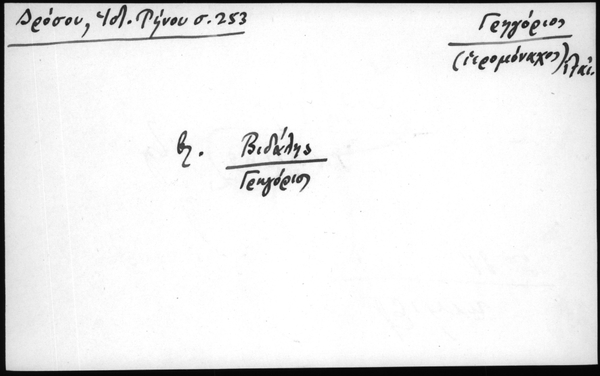 Δρόσου, Ἱστ. Τήνου σ. 253
Γρηγόριος
(ἱερομόναχος)
βλ. Βιδάλης
Γρηγόριος